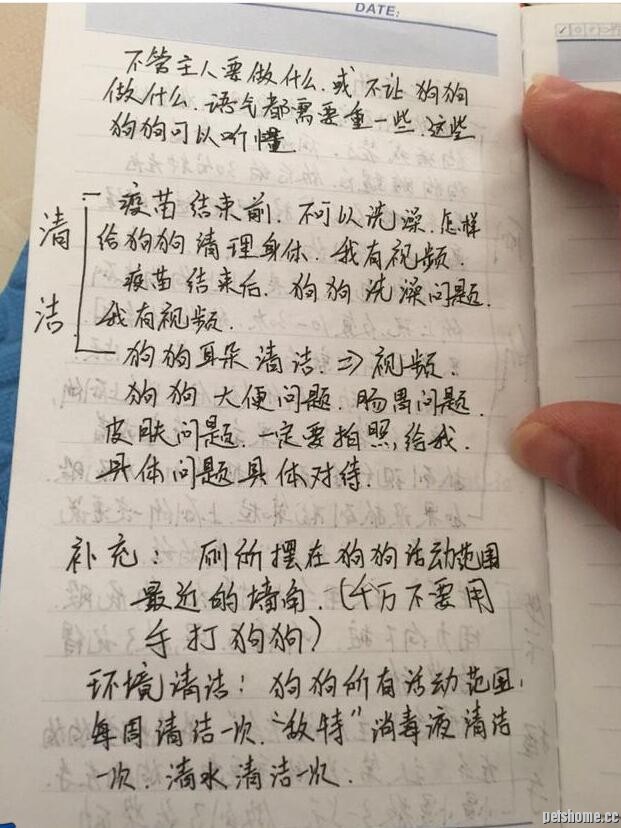 DATE:
不管主人要做什么.或不让狗狗
做什么.语气都需要重一些.这些
狗狗可以听懂.
疫苗结束前.不可以洗澡.怎样
清 给狗狗清理身体.我有视频.
疫苗结束后.狗狗洗澡问题.
洁 我有视频.
狗狗耳朵清洁.⇒视频.
狗狗大便问题.肠胃问题.
皮肤问题.一定要拍照给我.
具体问题具体对待.
补充:厕所摆在狗狗活动范围
最近的墙角.(千万不要用
手打狗狗)
环境清洁:狗狗所有活动范围.
每周清洁一次.“敌特”消毒液清洁
一次.清水清洁一次.
petshome.cc